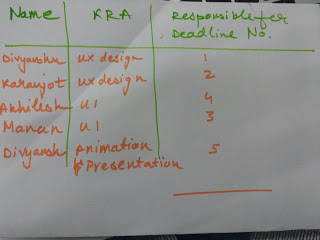 Name KRA Responsible for
Deadline No.
Divyanshu ux design 1
Karanjot ux design 2
Akhilesh UI 4
Manan UI 3
Divyansh Animation 5
& Presentation